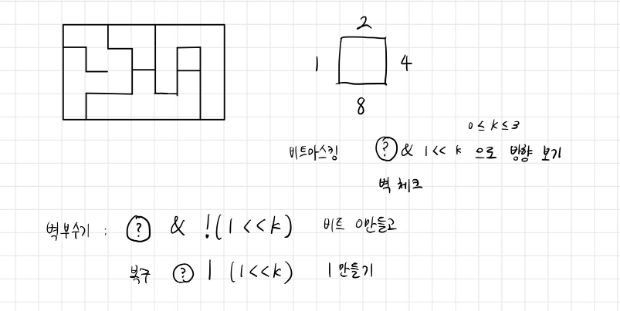 2
1 4
8
0 ≤ k ≤ 3
비트마스킹 ? & 1<< k 으로 방향 보기
벽 체크
벽부수기 : ? & !(1<<k) 비트 0만들고
복구 ? | (1<<k) 1 만들기